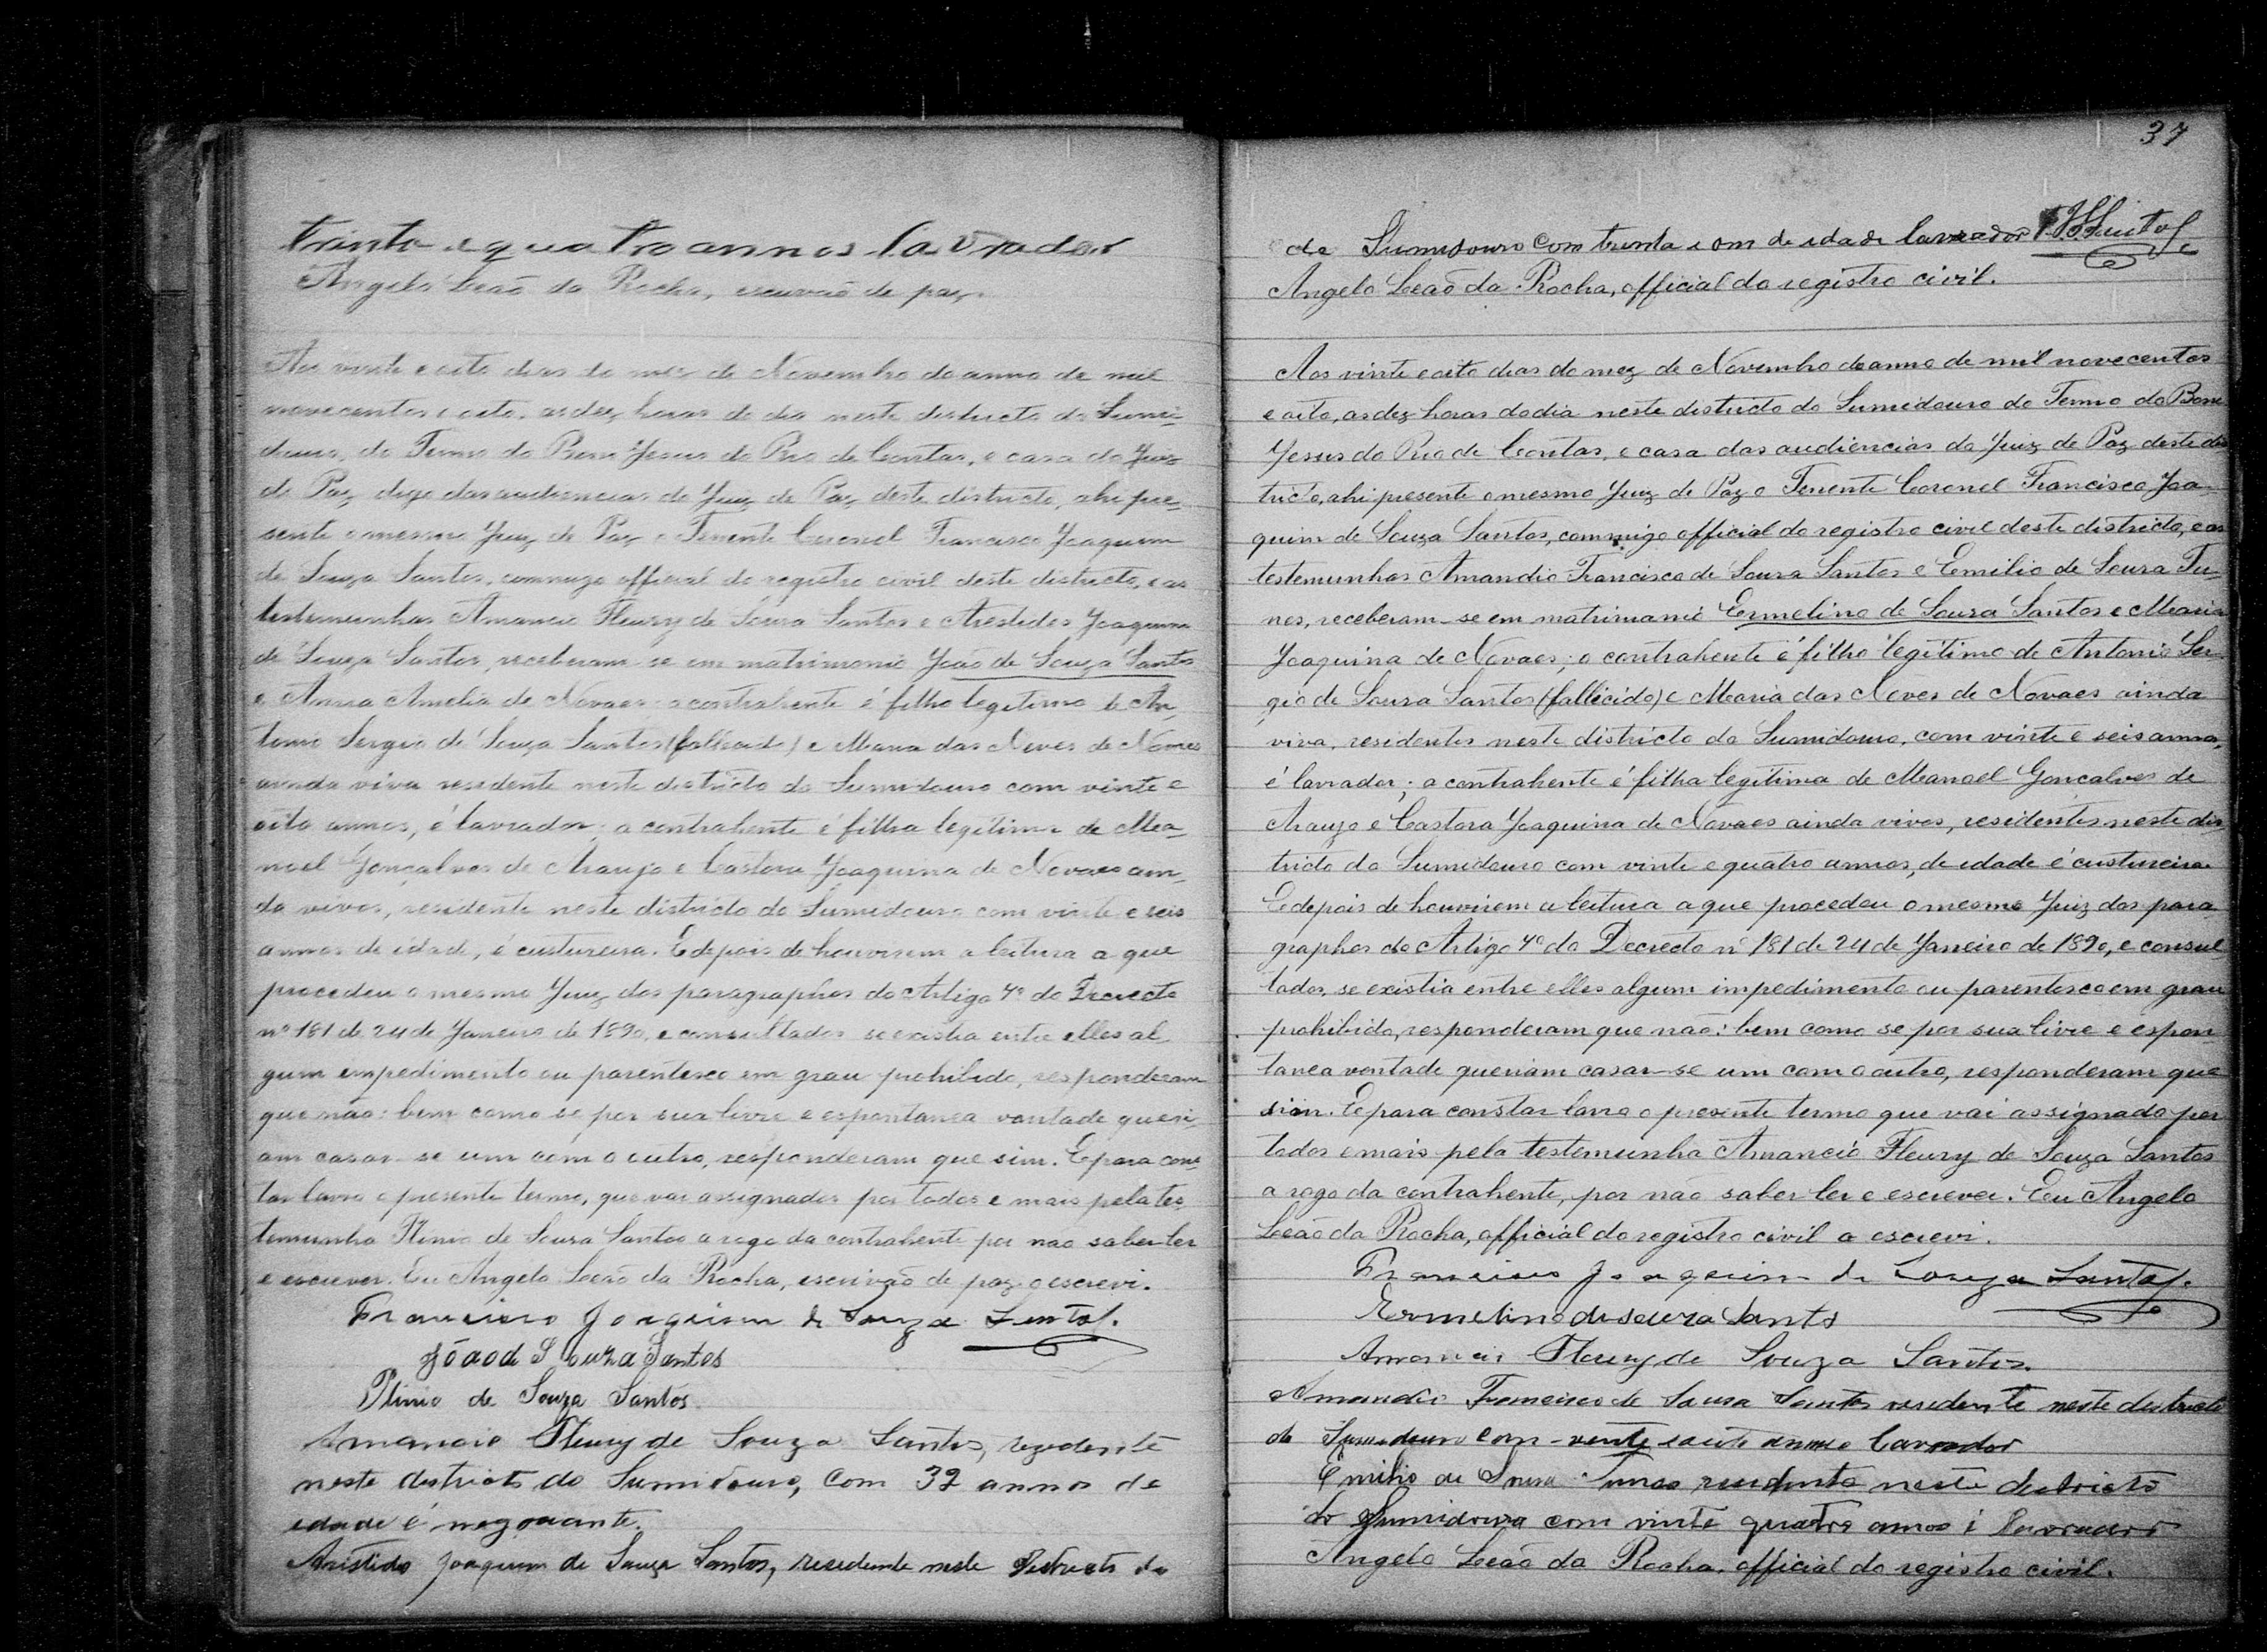 trinta e quatro annos lavrador
Angelo Leão da Rocha, escrivão de paz.
Aos vinte e oito dias do mez de Novembro do anno de mil
novecentos e oito, as dez horas do dia neste districto do Sumi-
douro, do Termo do Bom Jesus do Rio de Contas, e casa do Juiz
de Paz, digo das audiencias do Juiz de Paz deste districto, ahi pre-
sente o mesmo Juiz de Paz o Tenente Coronel Francisco Joaquim
de Souza Santos, commigo official do registro civil deste districto, e as
testemunhas Amancio Fleury de Souza Santos e Aristides Joaquim
de Souza Santos, receberam-se em matrimonio João de Souza Santos
e Anna Amelia de Novaes: o contrahente é filho legitimo de An-
tonio Sergio de Souza Santos (fallecido) e Maria das Neves de Novaes
ainda viva residente neste districto do Sumidouro com vinte e
oito annos, é lavrador; a contrahente é filha legitima de Ma-
noel Gonçalves de Araujo e Castora Joaquina de Novaes ain-
da vivos, residente neste districto do Sumidouro com vinte e seis
annos de idade, é custureira. E depois de houvirem a leitura a que
procedeu o mesmo Juiz dos paragraphos do Artigo 4º do Decreto
nº 181 de 24 de Janeiro de 1890, e consultados se existia entre elles al-
gum impedimento ou parentesco em grau prohibido, responderam
que não: bem como se por sua livre e espontanea vontade queri-
am casar-se um com o outro, responderam que sim. E para cons-
tar lavro o presente termo, que vai assignados por todos e mais pela tes-
temunha Plinio de Souza Santos a rogo da contrahente por nao saber ler
e escrever. Eu Angelo Leão da Rocha, escrivão de paz o escrevi.
Francisco Joaquim de Souza Santos.
João de Souza Santos
Plinio de Souza Santos
Amancio Fleury de Souza Santos, rezedente
neste districto do Sumidouro, com 32 annos de
edade é negociante.
Aristides Joaquim de Souza Santos, residente neste districto do
37
de Sumidouro com trenta e om de edade lavrador
Angelo Leão da Rocha, official do registro civil.
Aos vinte e oito dias do mez de Novembro do anno de mil novecentos
e oito, as dez horas do dia neste districto do Sumidouro do Termo do Bom
Jesus do Rio de Contas, e casa das audiencias do Juiz de Paz deste dis-
tricto, ahi presente o mesmo Juiz de Paz o Tenente Coronel Francisco Joa-
quim de Souza Santos, commigo official do registro civil deste districto, e as
testemunhas Amandio Francisco de Souza Santos e Emilio de Souza Tu-
nes, receberam-se em matrimonio Ermelino de Souza Santos e Maria
Joaquina de Novaes; o contrahente é filho legitimo de Antonio Ser-
gio de Souza Santos (fallecido) e Maria das Neves de Novaes ainda
viva, residentes neste districto do Sumidouro, com vinte e seis annos,
é lavrador; a contrahente é filha legitima de Manoel Gonçalves de
Araujo e Castora Joaquina de Novaes ainda vivos, residentes neste dis-
tricto do Sumidouro com vinte e quatro annos, de edade é custureira.
E depois de houvirem a leitura a que procedeu o mesmo Juiz dos para-
graphos do Artigo 4º do Decreto nº 181 de 24 de Janeiro de 1890, e consul
tados, se existia entre elles algum impedimento ou parentesco em grau
prohibido, responderam que não: bem como se por sua livre e espon-
tanea vontade queriam casar-se um com o outro, responderam que
sim. E para constar lavro o presente termo que vai assignado por
todos e mais pela testemunha Amancio Fleury de Souza Santos
a rogo da contrahente, por não saber ler e escrever. Eu Angelo
Leão da Rocha, official do registro civil o escrevi.
Francisco Joaquim de Souza Santos.
Ermelino de Souza Santos
Amancio Fleury de Souza Santos.
Amandio Francisco de Souza Santos residente neste districto
do Sumidouro com vente e oito annos lavrador
Emilio de Souza Tunes residente neste districto
do Sumidouro com vinte quatro annos é lavrador
Angelo Leão da Rocha, official do registro civil.